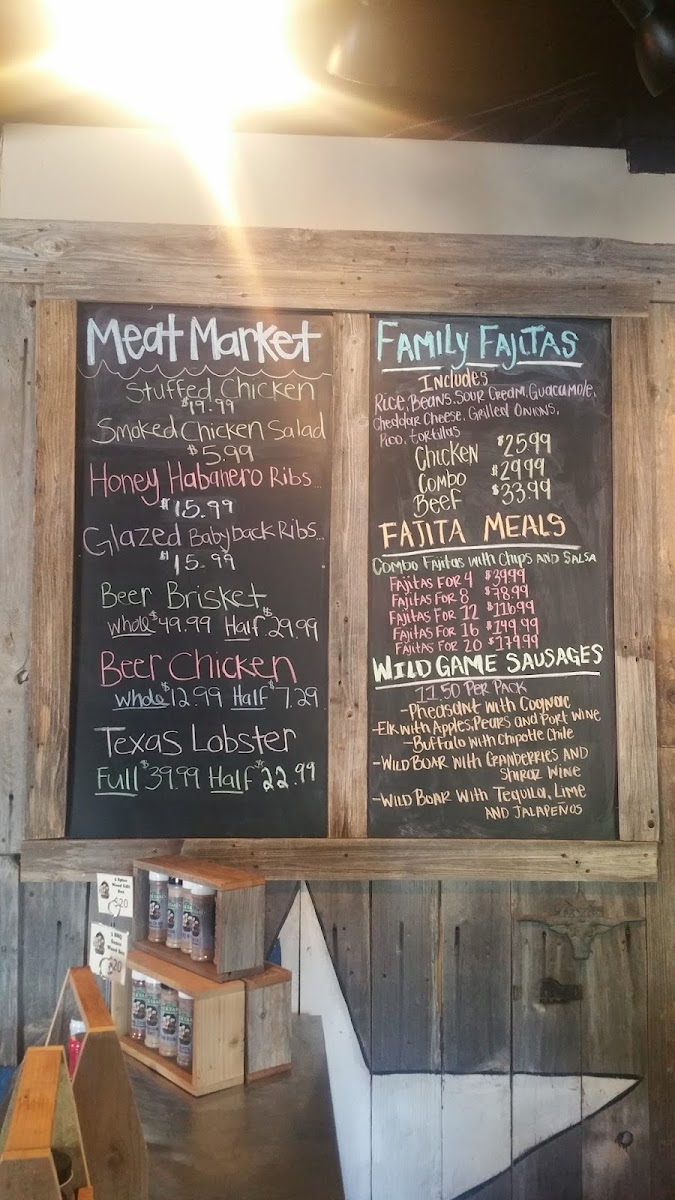 Meat Market
Stuffed Chicken
$19.99
Smoked Chicken Salad
$5.99
Honey Habanero Ribs...
$15.99
Glazed Babyback Ribs...
$15.99
Beer Brisket
Whole $49.99 Half $29.99
Beer Chicken
Whole $12.99 Half $7.29
Texas Lobster
Full $39.99 Half $22.99
Family Fajitas
Includes
Rice, Beans, Sour Cream, Guacamole,
Cheddar Cheese, Grilled Onions,
Pico, tortillas
Chicken $25.99
Combo $29.99
Beef $33.99
Fajita Meals
Combo Fajitas with Chips and Salsa
Fajitas for 4 $39.99
Fajitas for 8 $78.99
Fajitas for 12 $116.99
Fajitas for 16 $149.99
Fajitas for 20 $179.99
Wild Game Sausages
11.50 Per Pack
-Pheasant with Cognac
-Elk with Apples, Pears and Port Wine
-Buffalo with Chipotle Chile
-Wild Boar with Cranberries and
Shiraz Wine
-Wild Boar with Tequila, Lime
and Jalapeños
$20
$20